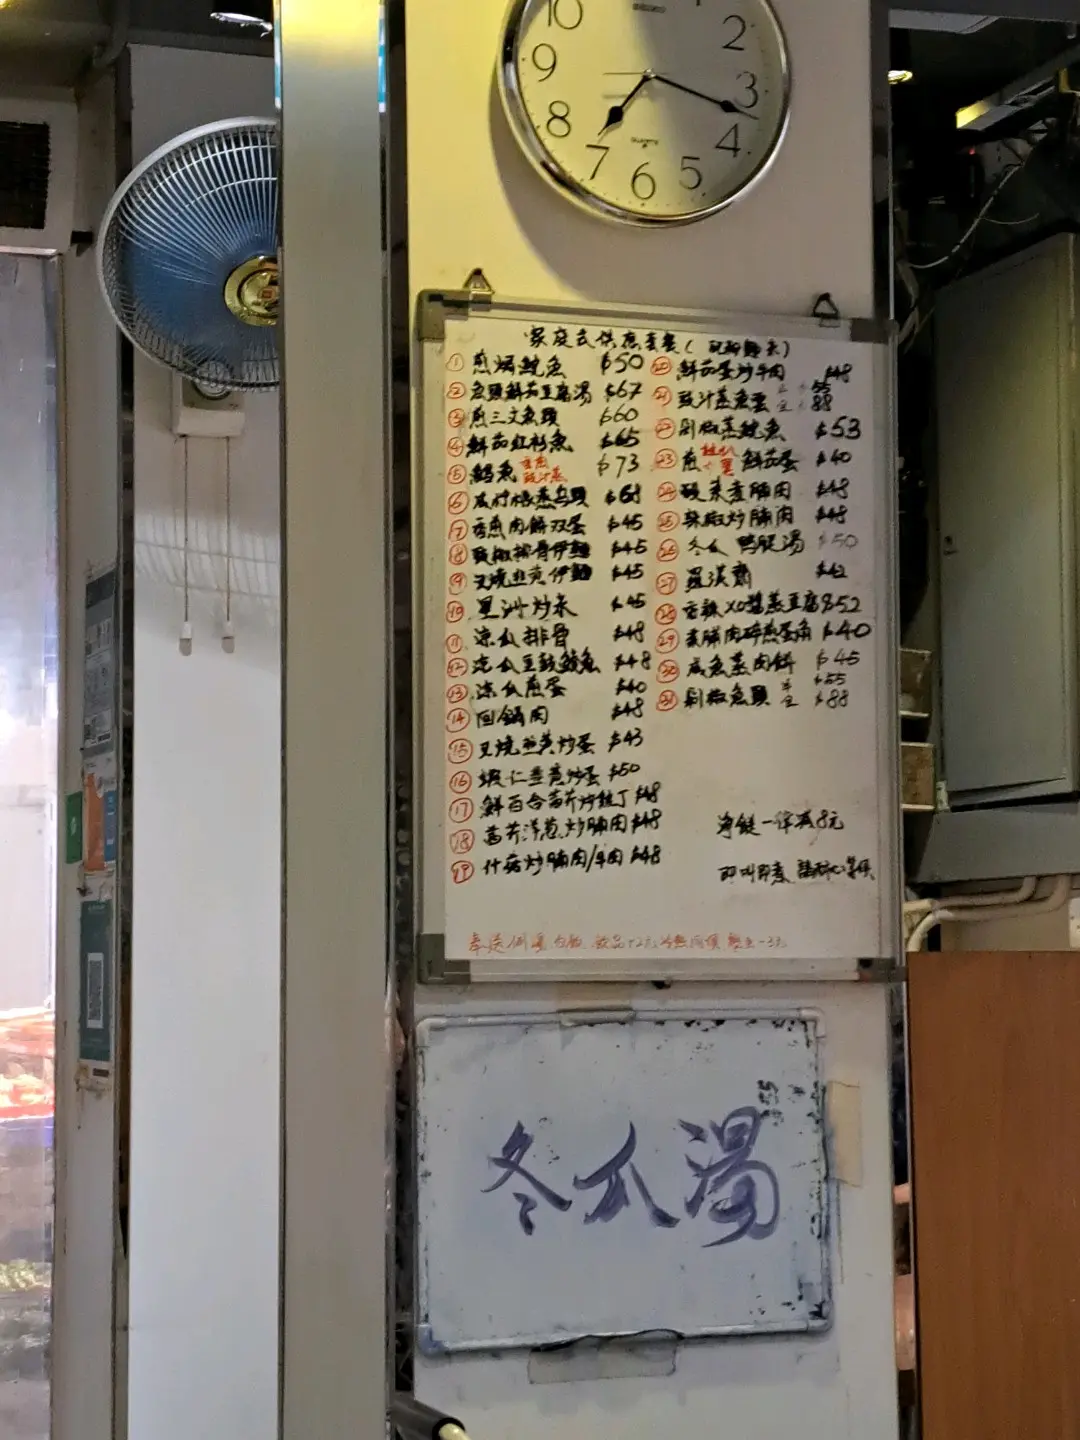 10
2
9
3
8
4
7
6
5
SEIKO
QUARTZ
① 煎焗鯇魚 $50
② 魚頭鮮茄豆腐湯 $67
③ 煎三文魚頭 $60
④ 鮮茄紅衫魚 $65
⑤ 魚 $73
⑥ $68
⑦ 香煎肉餅双蛋 $45
⑧ 豉椒排骨伊麵 $45
⑨ 叉燒韭黄伊麵 $45
⑩ 星洲炒米 $45
⑪ 涼瓜排骨 $48
⑫ 涼瓜豆豉鯪魚 $48
⑬ 涼瓜煎蛋 $40
⑭ 回鍋肉 $48
⑮ 叉燒韮黄炒蛋 $43
⑯ 蝦仁韮黄炒蛋 $50
⑰ 鮮百合 $48
⑱ 洋葱炒腩肉 $48
⑲ 什菇炒腩肉/牛肉 $48
⑳ 鮮茄蛋炒牛肉 $48
㉑ 豉汁蒸魚雲 半 $55 全 $88
㉒ 剁椒蒸鯇魚 $53
㉓ 煎 鮮茄蛋 $40
㉔ 煮腩肉 $48
㉕ 辣椒炒腩肉 $48
㉖ 冬瓜鸭腿湯 $50
㉗ 羅漢齋 $42
㉘ 香辣XO醬蒸豆腐 $52
㉙ 腩肉碎煎蛋角 $40
㉚ 咸魚蒸肉餅 $45
㉛ 剁椒魚頭 半 $55 全 $88
淨餸一律减8元
即叫即煮 請耐心等候
奉送例湯 白飯 飲品+2元
冬瓜湯